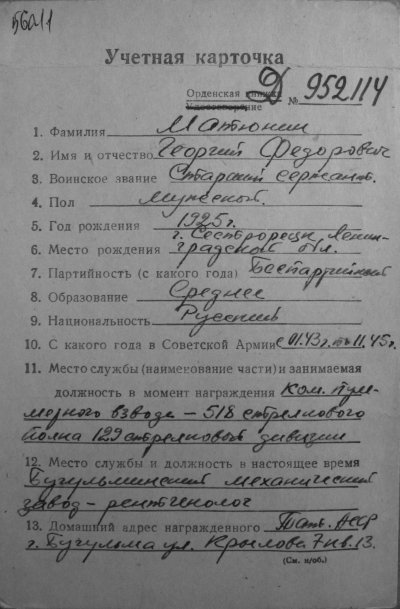 560/1
Учетная карточка
Орденская книжка Д
Удостоверение № 952114
1. Фамилия Матюнин
2. Имя и отчество Георгий Федорович
3. Воинское звание Старший сержант.
4. Пол мужской.
5. Год рождения 1925г.
г. Сестрорецк Ленин-
6. Место рождения градской обл.
7. Партийность (с какого года) Беспартийный
8. Образование Среднее
9. Национальность Русский
10. С какого года в Советской Армии с 01.43г. по 11.45г.
11. Место службы (наименование части) и занимаемая
должность в момент награждения Ком. пуле-
мётного взвода – 518 стрелкового
полка 129 стрелковой дивизии
12. Место службы и должность в настоящее время
Бугульминский механический
завод – рентгенолог
13. Домашний адрес награжденного Тат. АССР
г. Бугульма ул. Крылова 7 кв. 13.
(См. н/об.)